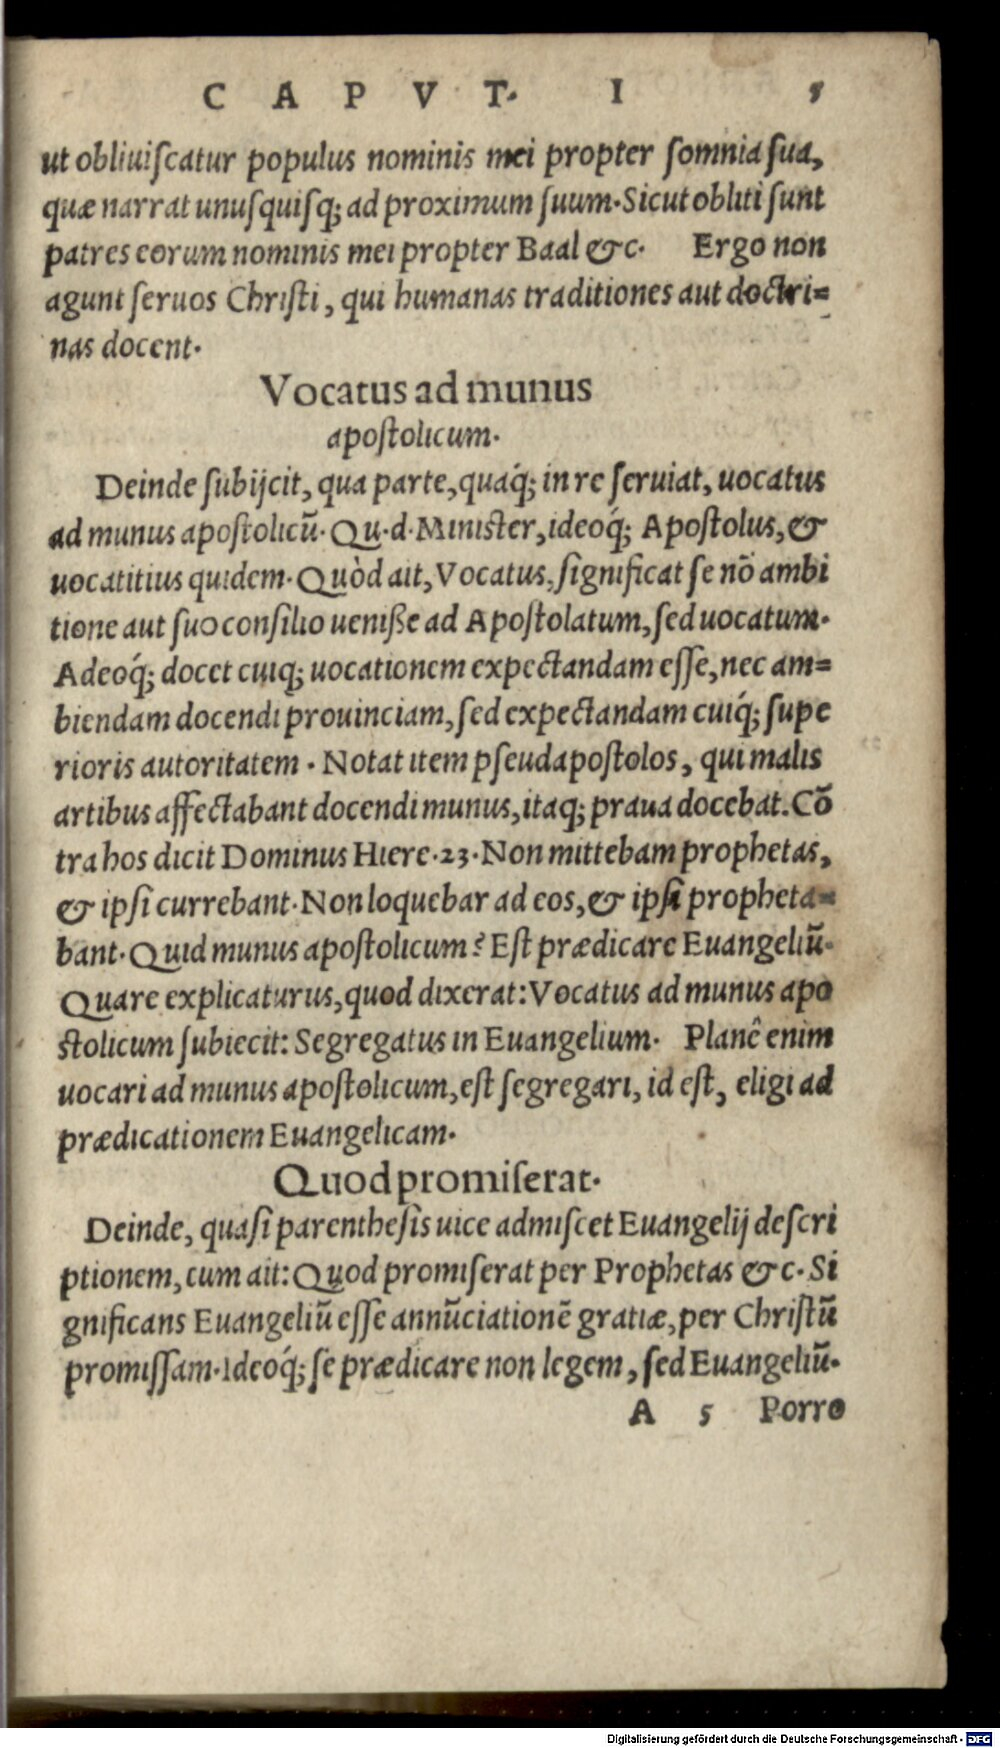 CAPVT. I 5
ut obliuiſcatur populus nominis mei propter ſomnia ſua,
quæ narrat unuſquiſq; ad proximum ſuum. Sicut obliti ſunt
patres eorum nominis mei propter Baal &c. Ergo non
agunt ſeruos Chriſti, qui humanas traditiones aut doctri=
nas docent.
Vocatus ad munus
apoſtolicum.
Deinde ſubijcit, qua parte, quaq́; in re ſeruiat, uocatus
ad munus apoſtolicū. Qu. d. Miniſter, ideoq́; Apoſtolus, &
uocatitius quidem. Quòd ait, Vocatus, ſignificat ſe nō ambi
tione aut ſuo conſilio ueniße ad Apoſtolatum, ſed uocatum.
Adeoq́; docet cuiq; uocationem expectandam eſſe, nec am=
biendam docendi prouinciam, ſed expectandam cuiq́; ſupe
rioris autoritatem. Notat item pſeudapoſtolos, qui malis
artibus affectabant docendi munus, itaq; praua docebāt. Cō
tra hos dicit Dominus Hiere. 23. Non mittebam prophetas,
& ipſi currebant. Non loquebar ad eos, & ipſi propheta=
bant. Quid munus apoſtolicum? Eſt prædicare Euangeliū.
Quare explicaturus, quod dixerat: Vocatus ad munus apo
ſtolicum ſubiecit: Segregatus in Euangelium. Planê enim
uocari ad munus apoſtolicum, eſt ſegregari, id eſt, eligi ad
prædicationem Euangelicam.
Quod promiſerat.
Deinde, quaſi parentheſis uice admiſcet Euangelij deſcri
ptionem, cum ait: Quod promiſerat per Prophetas &c. Si
gnificans Euangeliū eſſe annūciationē gratiæ, per Chriſtū
promiſſam. Ideoq́; ſe prædicare non legem, ſed Euangeliū.
A 5 Porro
Digitalisierung gefördert durch die Deutsche Forschungsgemeinschaft - DFG